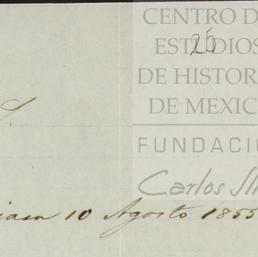 CENTRO D
ESTUDIOS
25
DE HISTOR
DE MEXIC
FUNDACIÓ
Carlos Sli
10 Agosto 1855